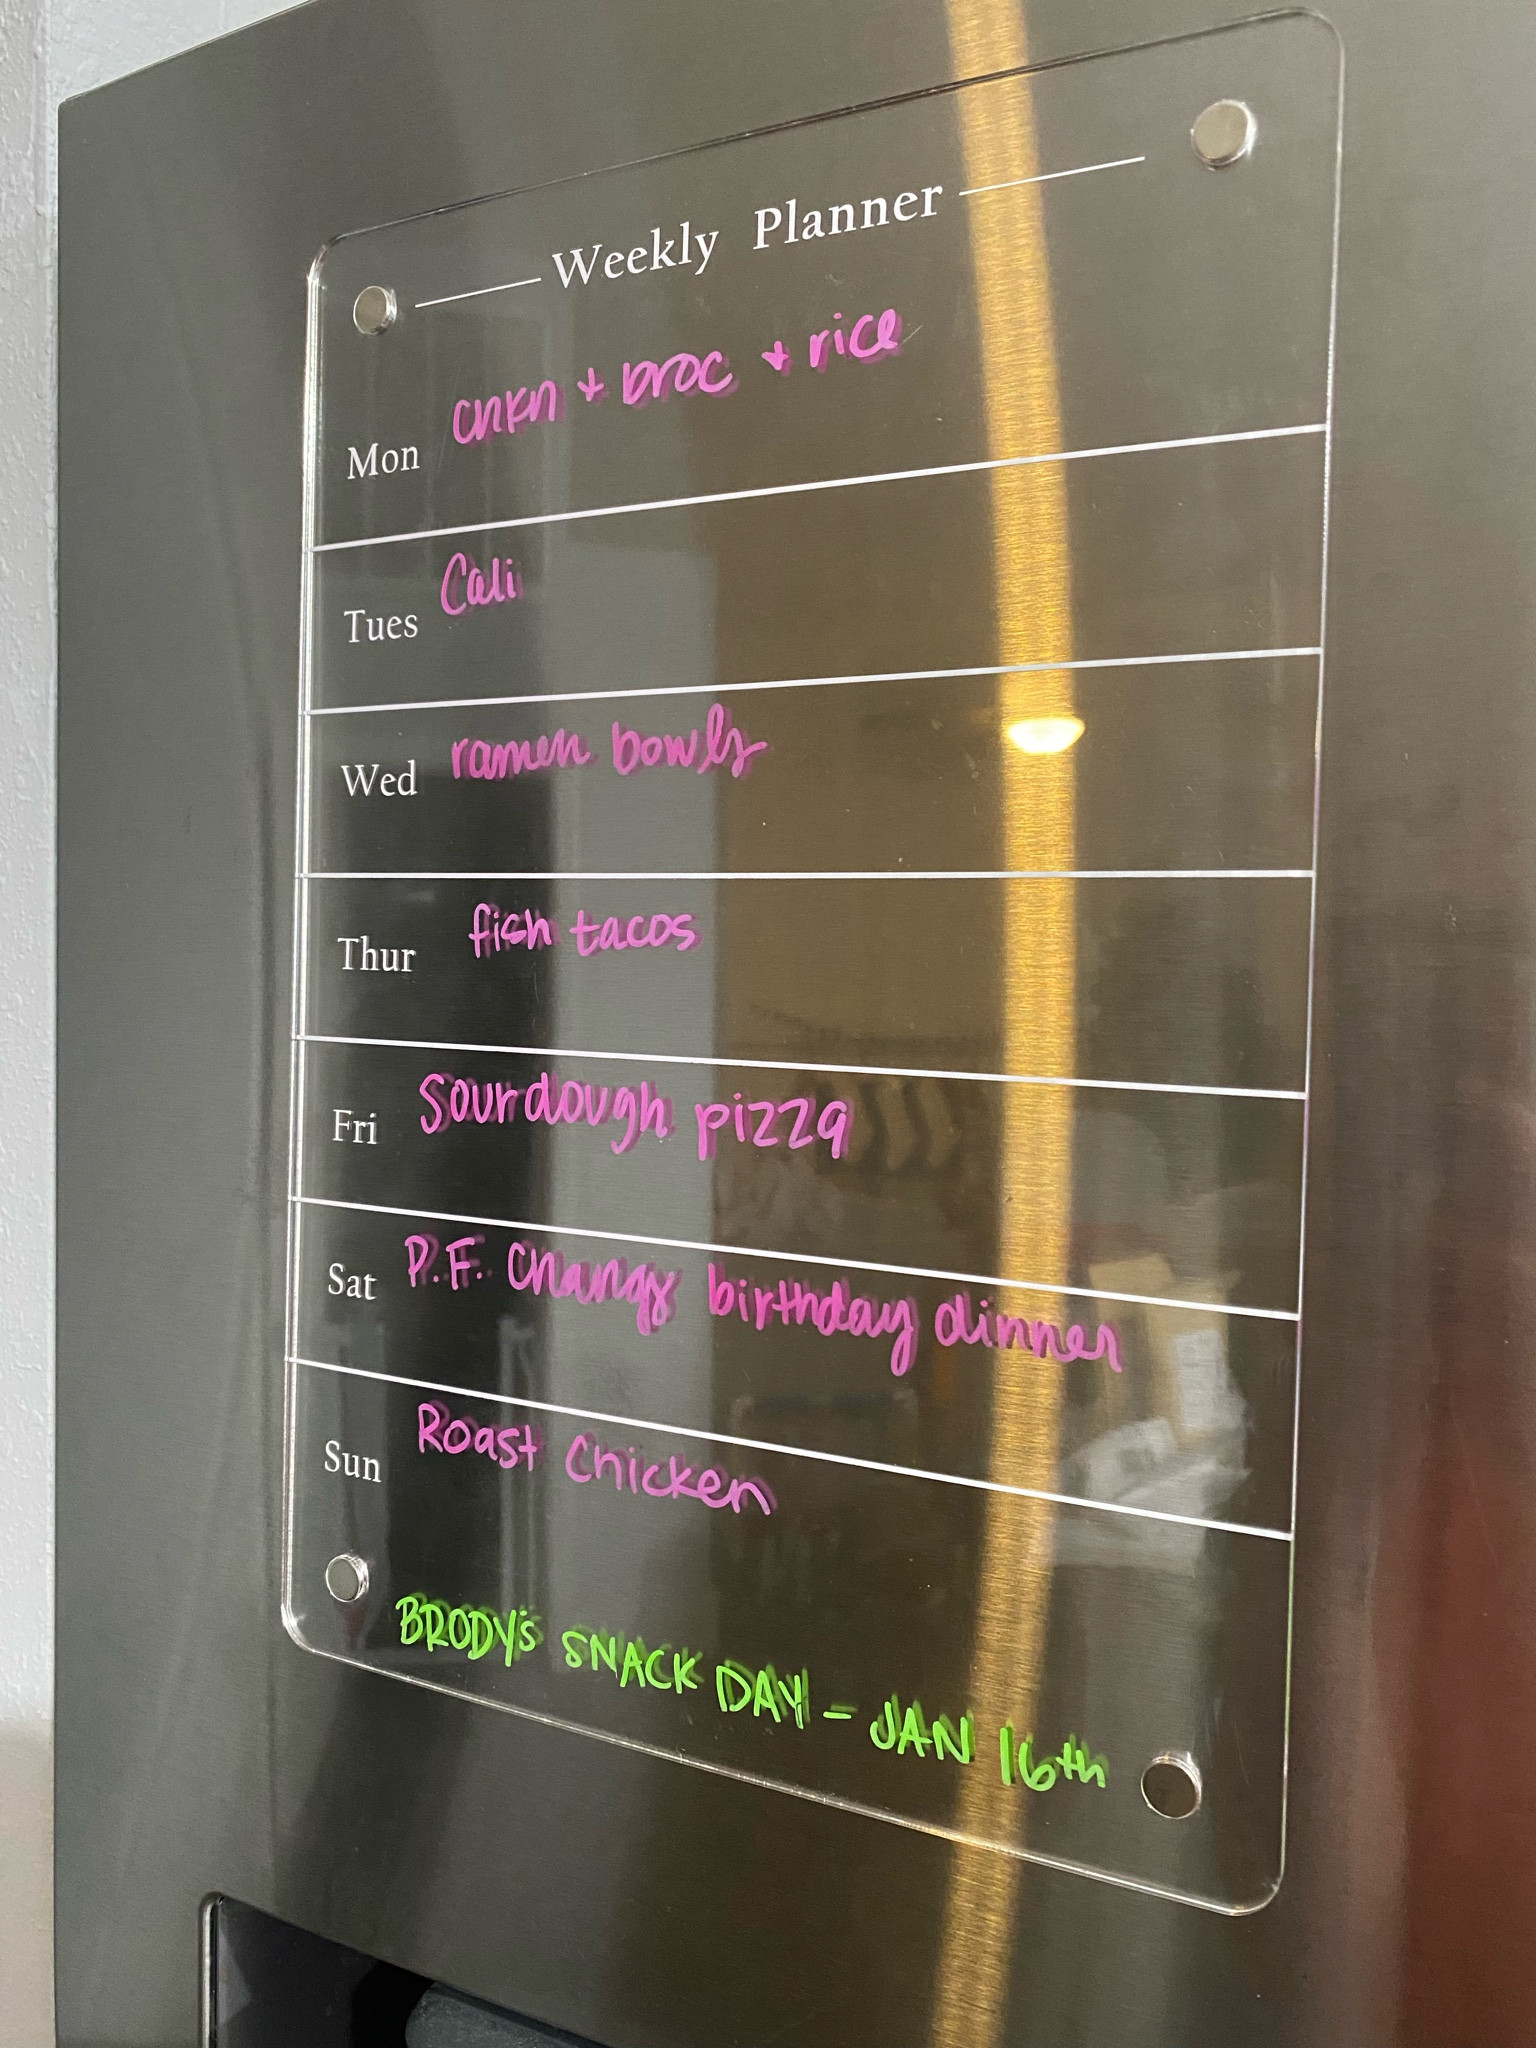 Weekly Planner
Mon chkn + broc + rice
Tues Cali
Wed ramen bowls
Thur fish tacos
Fri Sourdough pizza
Sat P.F. Changs birthday dinner
Sun Roast Chicken
BRODY'S SNACK DAY - JAN 16th